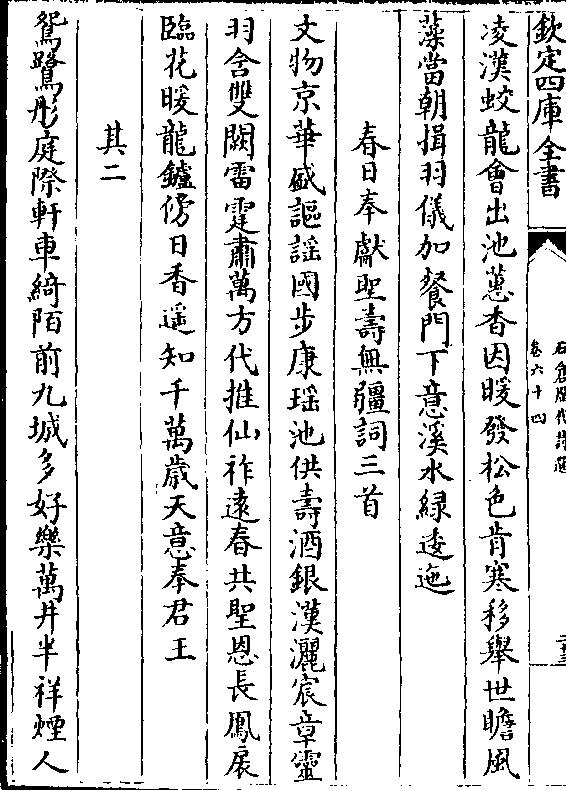 欽定四庫全書
石倉歷代詩選
卷六十四
二十三
凌漢蛟龍會出池蕙香因暖發松色肯寒移舉世瞻風
藻當朝揖羽儀加餐門下意溪水綠逶迤
春日奉獻聖壽無疆詞三首
文物京華盛謳謠國步康瑤池供壽酒銀漢灑宸章靈
羽含雙闕雷霆肅萬方代推仙祚遠春共聖恩長鳳扆
臨花暖龍鑪傍日香遥知千萬歲天意奉君王
其二
鴛鷺彤庭際軒車綺陌前九城多好樂萬井半祥煙人